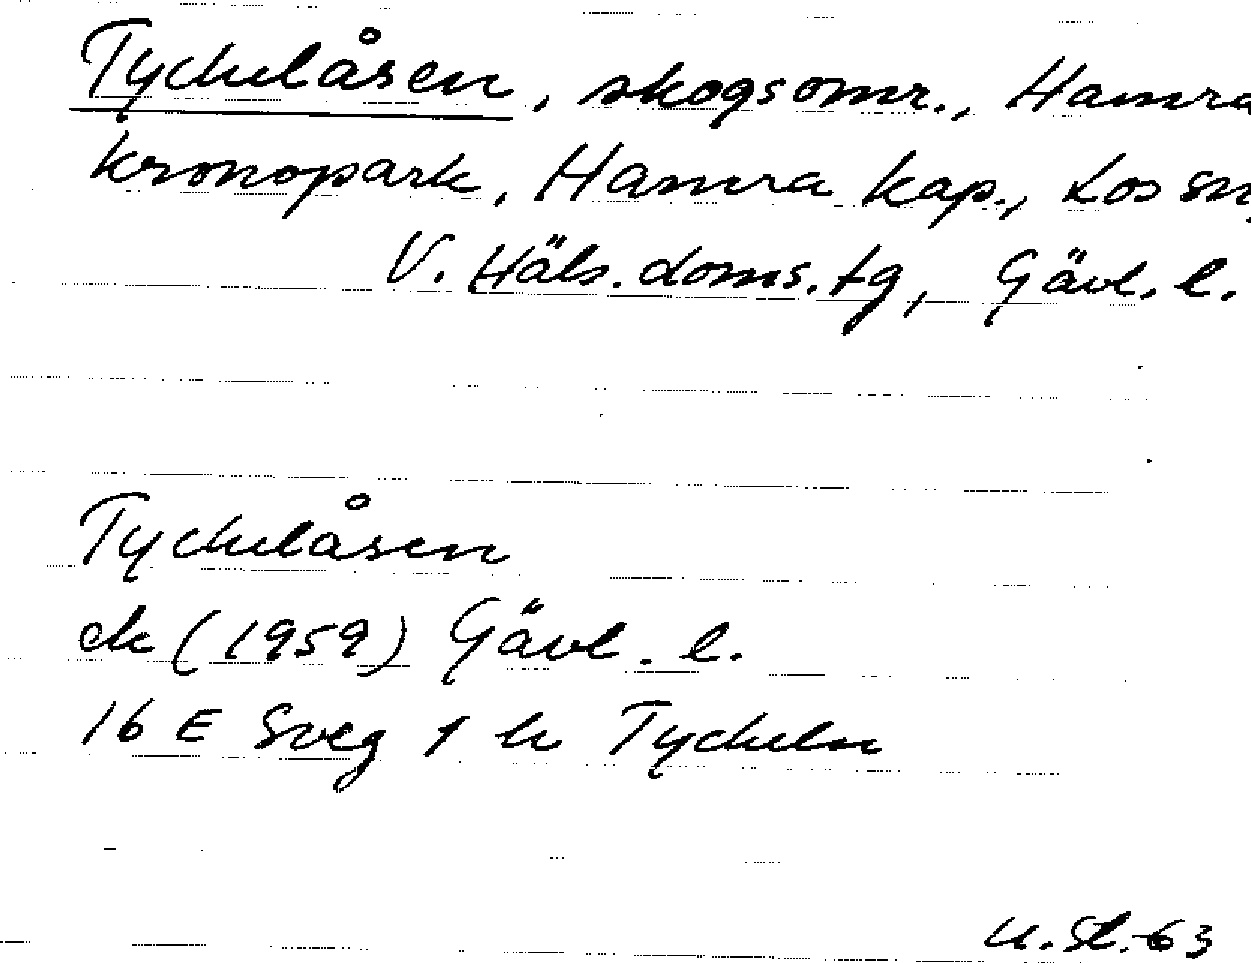 Tyckelåsen, skogsomr., Hamra
kronopark, Hamra kap., Los sn,
V. Häls. doms. tg, Gävl. l.
Tyckelåsen
ek (1959) Gävl. l.
16 E Sveg 1 h Tyckeln